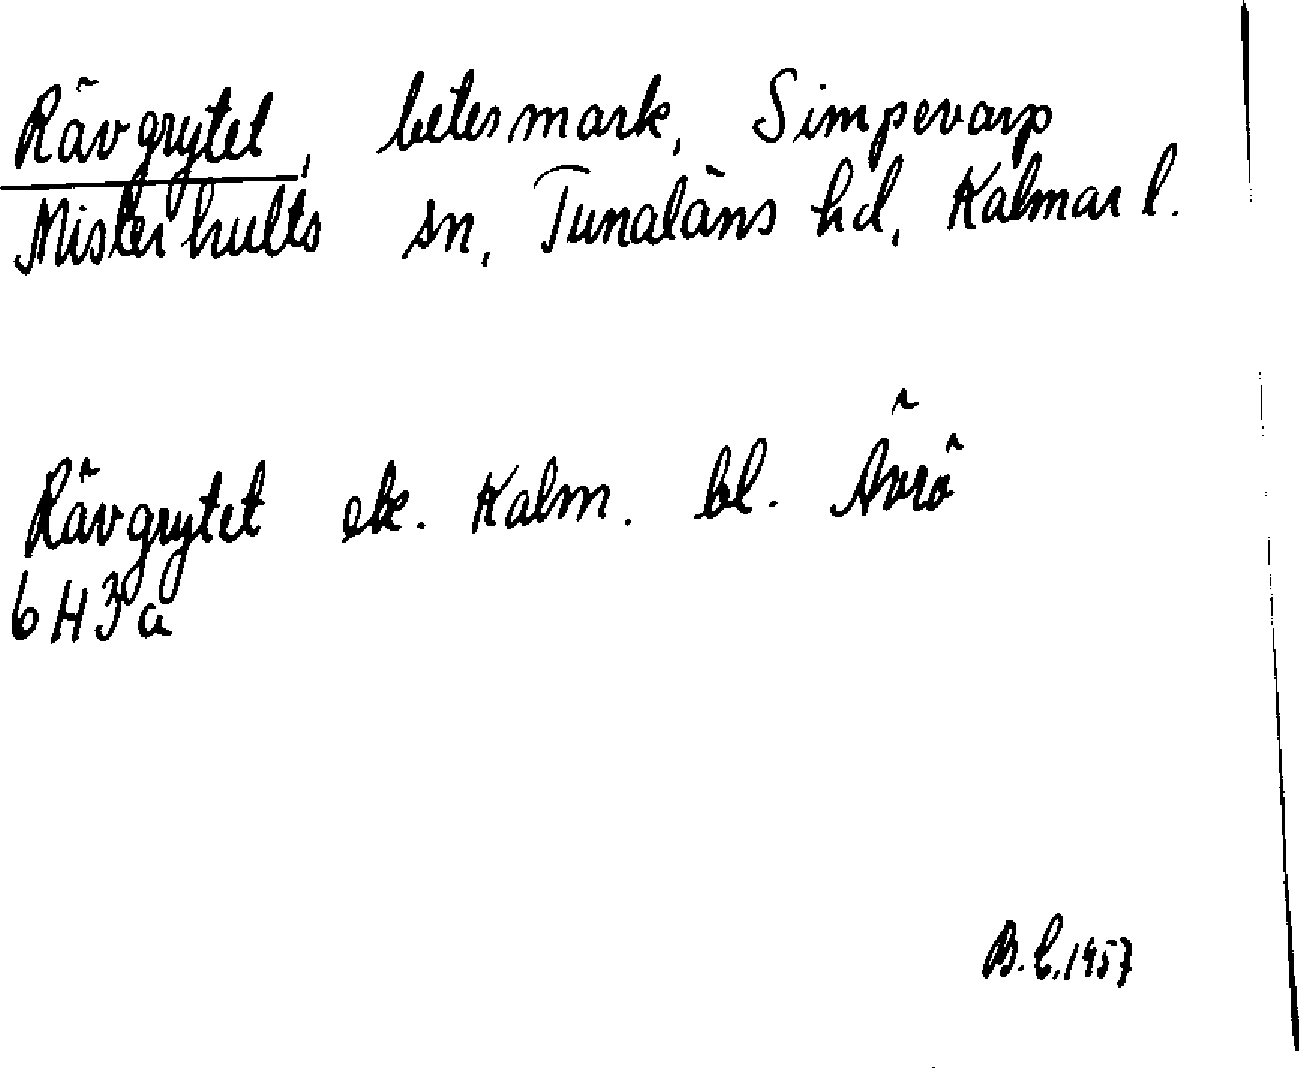 Rävgrytet, betesmark, Simpevarp
Misterhults sn, Tunaläns hd, Kalmar l.
Rävgrytet ek. Kalm. bl. Ävrö
6H3a
B.L. 1957